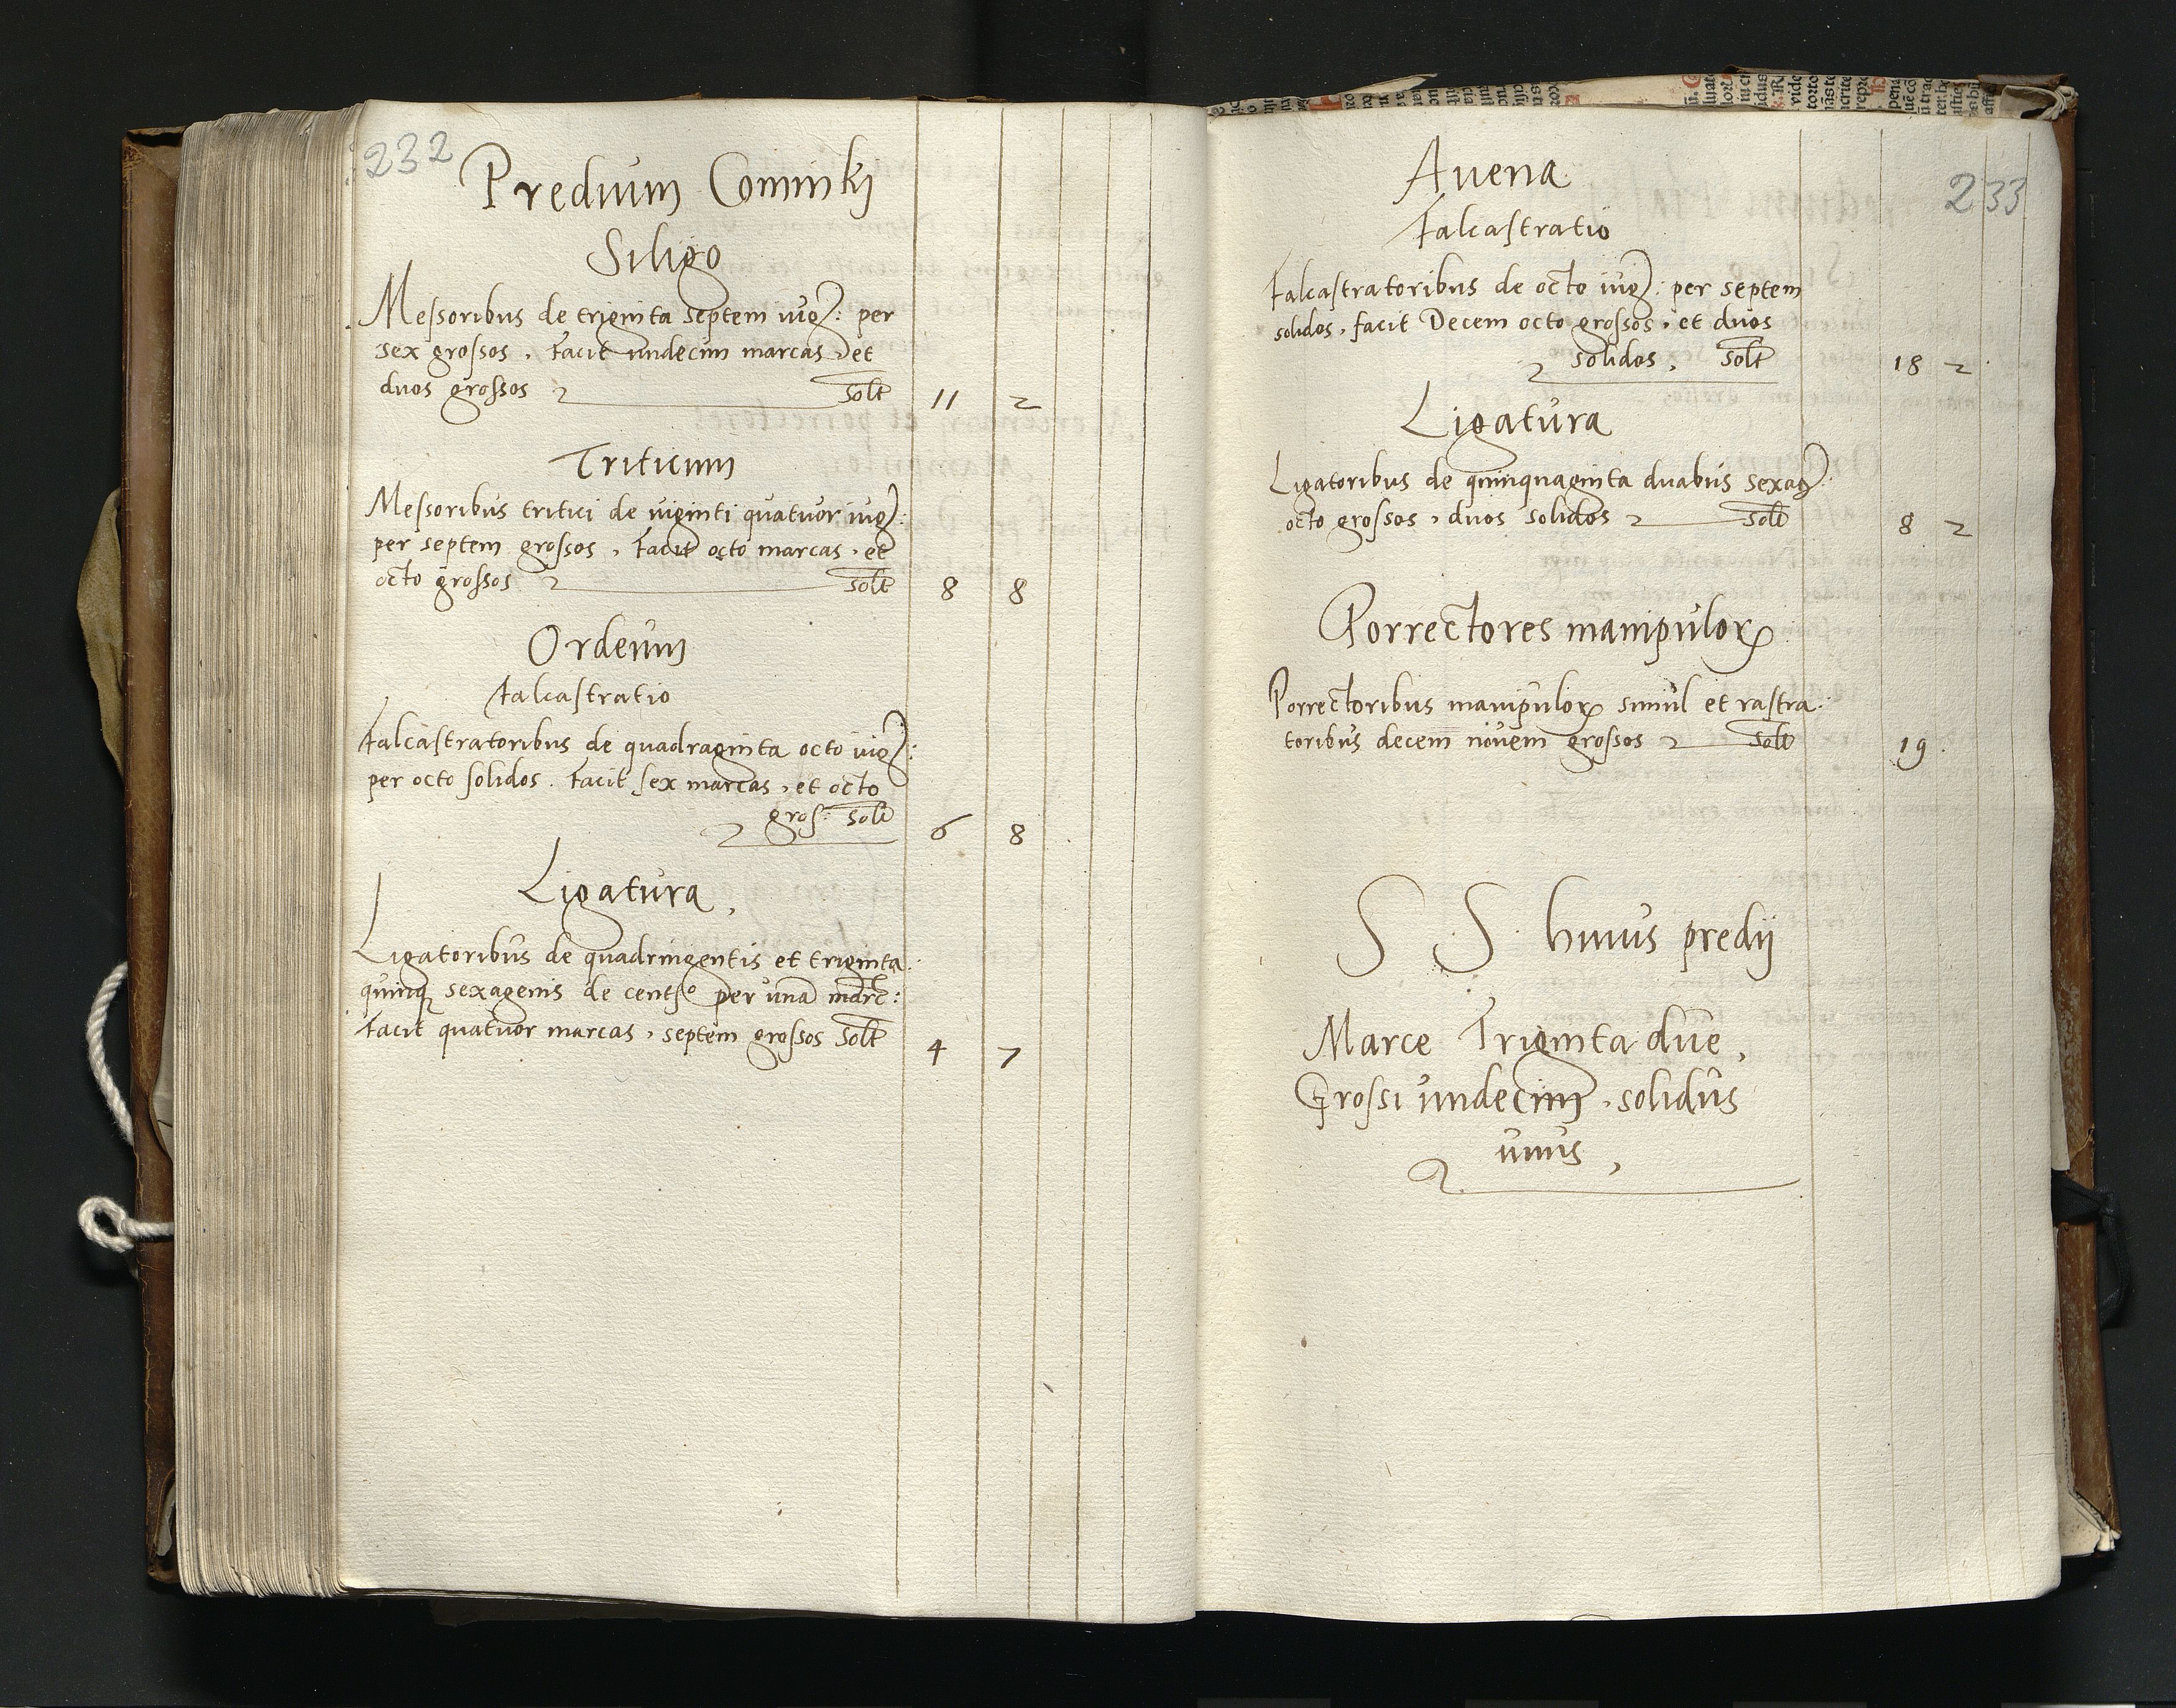 232
Predium Cominki
Siligo
Messoribus de triginta septem iug: per
sex grossos, facit undecim marcas et
duos grossos solt 11 2
Triticum
Messoribus tritici de viginti quatuor iug:
per septem grossos, facit octo marcas, et
octo grossos solt 8 8
Ordeum
Falcastratio
Falcastratoribus de quadraginta octo iug:
per octo solidos. facit sex marcas, et octo
gros: solt 6 8
Ligatura,
Ligatoribus de quadringentis et triginta
quinq sexagenis de per una marc:
facit quatuor marcas, septem grossos solt 4 7
233
Avena
Falcastratio
Falcastratoribus de octo iug: per septem
solidos, facit Decem octo grossos, et duos
solidos, solt 18 2
Ligatura
Ligatoribus de quinquaginta duabus sexag:
octo grossos, duos solidos solt 8 2
Porrectores manipuloꝝ
Porrectoribus manipuloꝝ simul et rastra:
toribus decem novem grossos solt 19
S S huius predij
Marce Triginta due,
Grossi undecim, solidus
unus,